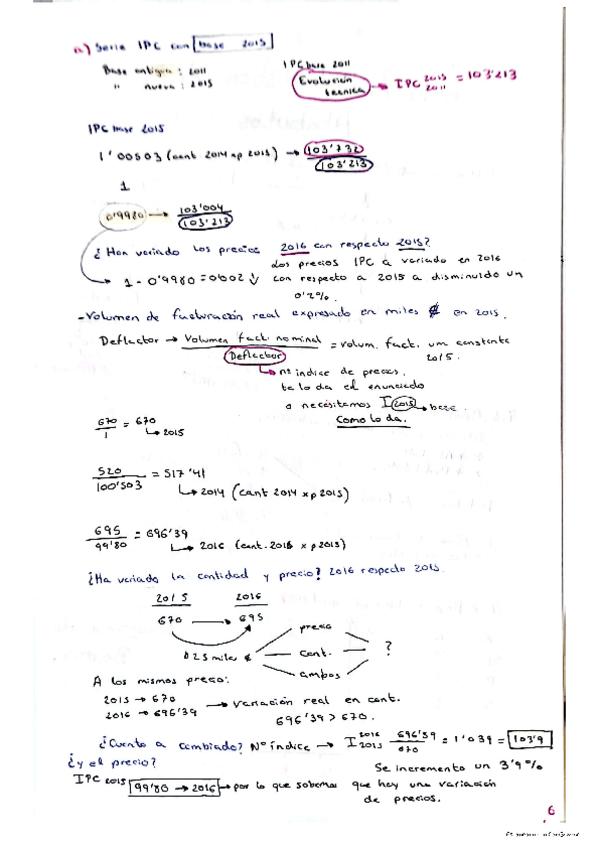 a) Serie IPC con base 2015
IPC base 2011
Base antigua : 2011
" nueva : 2015
Evolución técnica → IPC 2015 2011 = 103'213
IPC base 2015
1'00503 (cant 2014 xp 2015) → 103'732 / 103'213
1
0'9980 → 103'004 / 103'213
¿Han variado los precios 2016 con respecto 2015?
Los precios IPC a variado en 2016
→ 1 - 0'9980 = 0'002 ↓ con respecto a 2015 a disminuido un
0'2%.
- Volumen de facturación real expresado en miles € en 2015.
Deflactor → Volumen fact. nominal / Deflactor = volum. fact. um constante
2015.
→ nº indice de precios.
te lo da el enunciado
o necesitamos I 2015 → base
Como lo da.
670 / 1 = 670
→ 2015
520 / 100'503 = 517'41
→ 2014 (cant 2014 xp 2015)
695 / 99'80 = 696'39
→ 2016 (cant. 2016 x p 2015)
¿Ha variado la cantidad y precio? 2016 respecto 2015.
2015 2016
670 → 695
precio
25 miles € cant. ?
ambos
A los mismos precio:
2015 → 670
2016 → 696'39 → variación real en cant.
696'39 > 670.
¿Cuanto a cambiado? Nº índice → I 2016 2015 696'39 / 670 = 1'039 = 103'9
¿y el precio?
Se incremento un 3'9%
IPC 2015 99'80 → 2016 → por lo que sabemos que hay una variación
de precios.
6